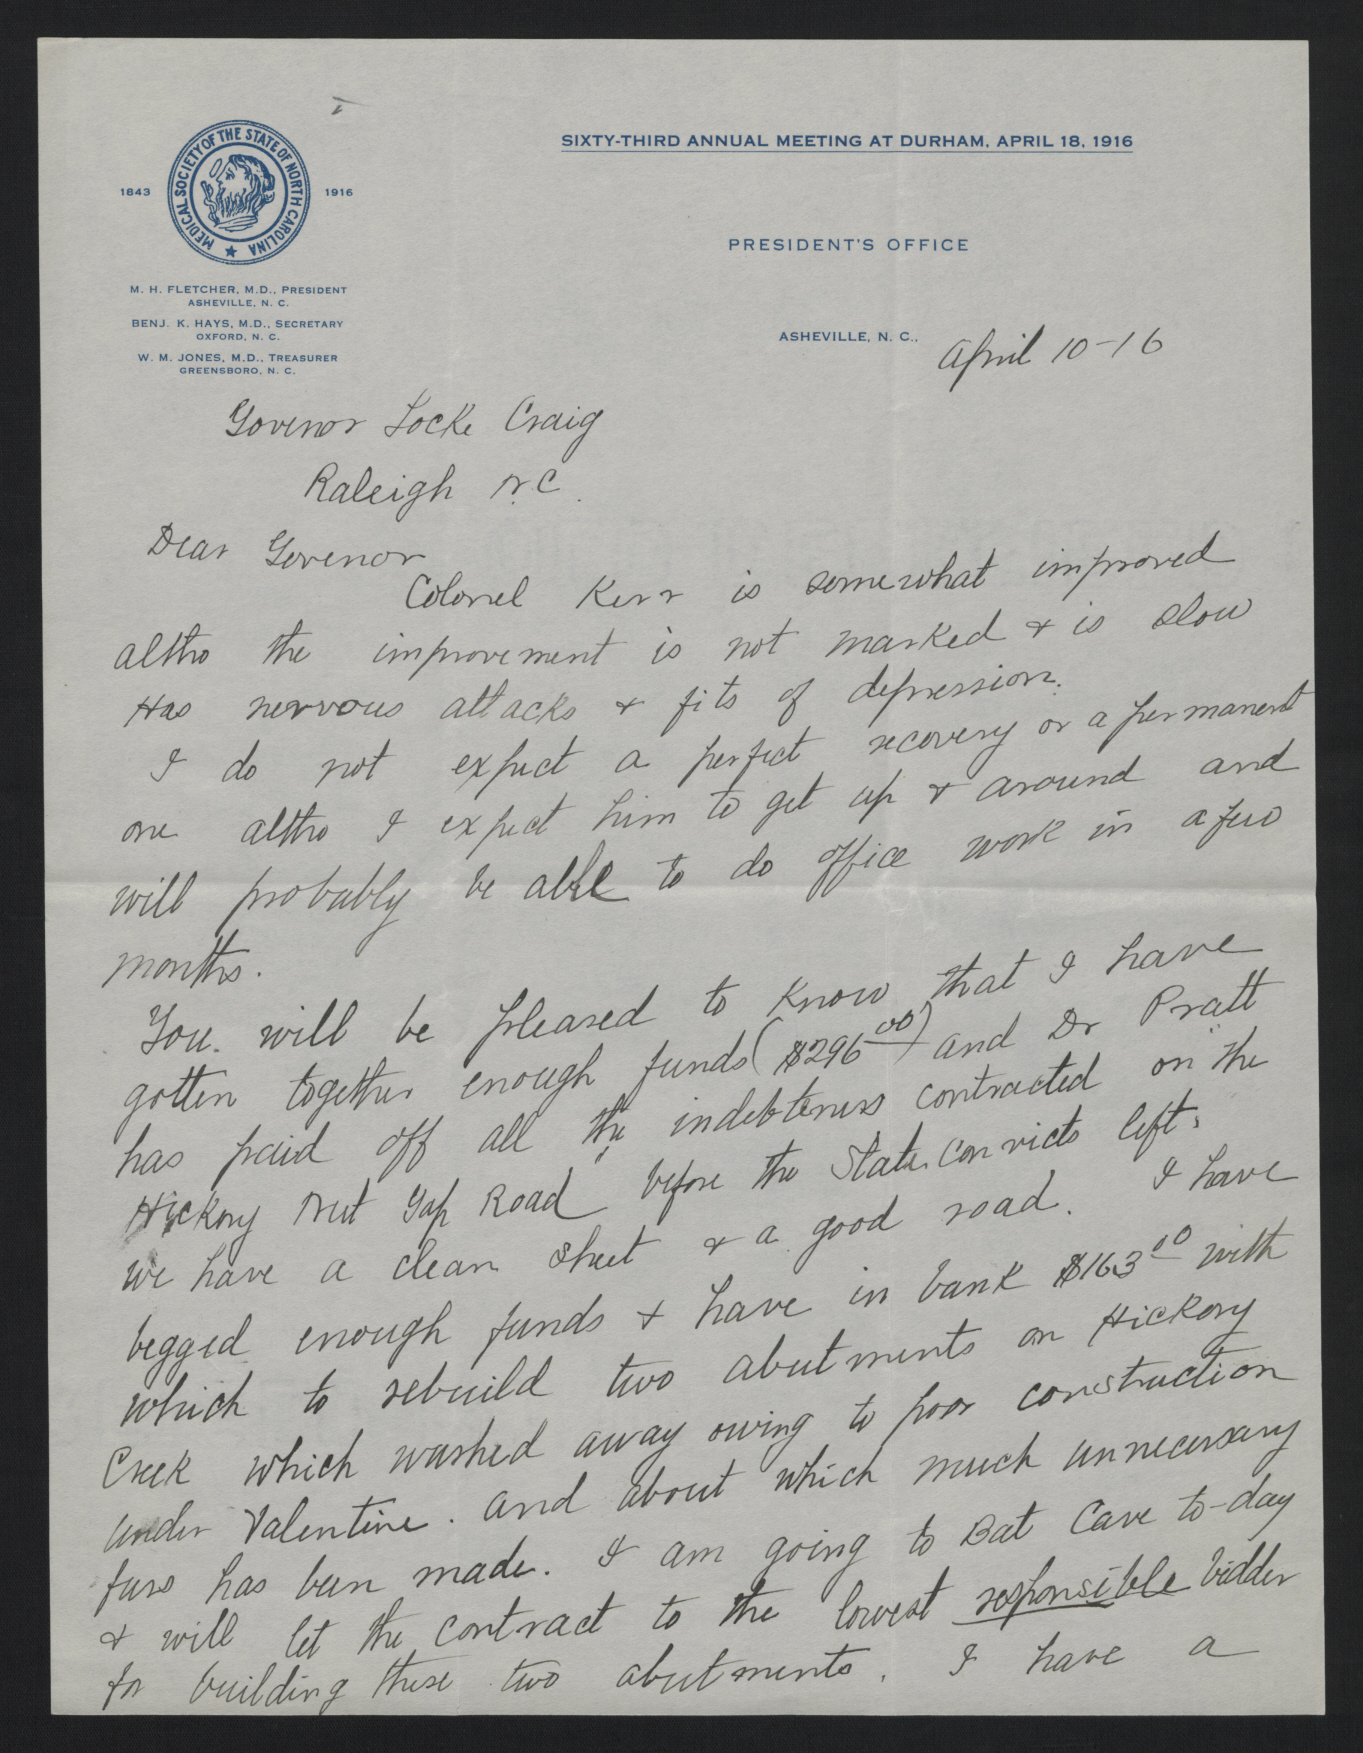 SIXTY-THIRD ANNUAL MEETING AT DURHAM, APRIL 18, 1916
MEDICAL SOCIETY OF THE STATE OF NORTH CAROLINA
1843 1916
PRESIDENT'S OFFICE
M. H. FLETCHER, M.D., PRESIDENT
ASHEVILLE, N. C.
BENJ. K. HAYS, M.D., SECRETARY
OXFORD, N. C.
W. M. JONES, M.D., TREASURER
GREENSBORO, N. C.
ASHEVILLE, N. C., April 10-16
Govenor Locke Craig
Raleigh N.C.
Dear Govenor
Colonel Kerr is somewhat improved
altho the improvement is not marked & is slow
Has nervous attacks & fits of depression.
I do not expect a perfect recovery or a permanent
one altho I expect him to get up & around and
will probably be able to do office work in a few
months.
You will be pleased to know that I have
gotten together enough funds ($296.00) and Dr Pratt
has paid off all the indebteness contracted on "the
Hickory Nut Gap Road" before the State Convicts left.
we have a clean sheet & a good road. I have
begged enough funds & have in bank $163.00 with
which to rebuild two abutments on Hickory
Creek which washed away owing to poor construction
under Valentine. and about which much unnecessary
fuss has been made. I am going to Bat Cave to-day
& will let the contract to the lowest responsible bidder
for building these two abutments. I have a